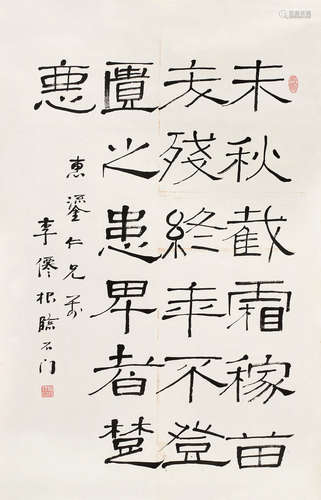 未秋截霜稼苗
夭殘終年不登
匱之患卑者楚
惡
惠鎏仁兄
李僊根臨石门